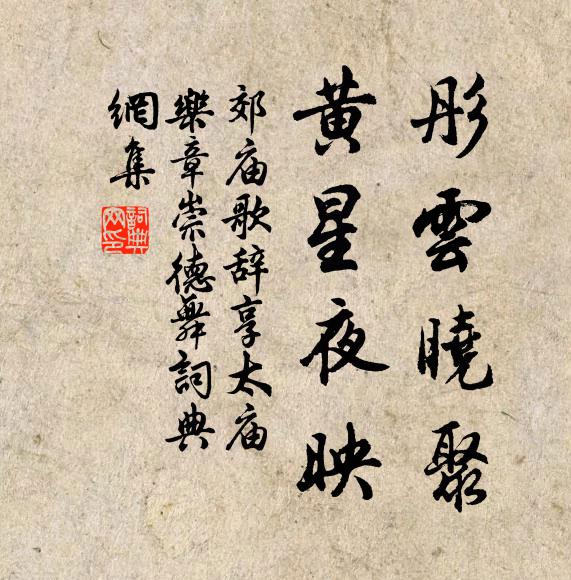 彤雲曉聚
黃星夜映
郊庙歌辞享太庙
樂章崇德舞詞典
網集
詞典網印